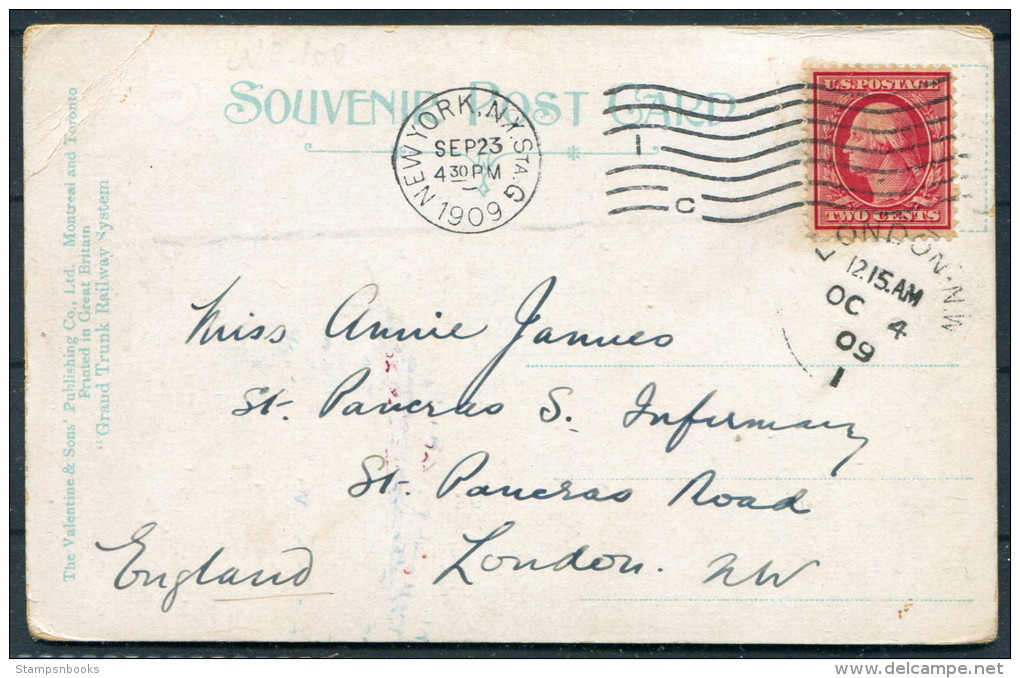 No 100
SOUVENIR POST CARD
NEW YORK, N.Y. STA. G
SEP 23
4 30 PM
1909
1
C
U.S. POSTAGE
TWO CENTS
LONDON. N.W
12.15.AM
OC 4
09
1
Miss Annie James
St. Pancras S. Infirmary
St. Pancras Road
London. NW
England
The Valentine & Sons' Publishing Co., Ltd. Montreal and Toronto
Printed in Great Britain
"Grand Trunk Railway System
Stampsnbooks
delcampe.net